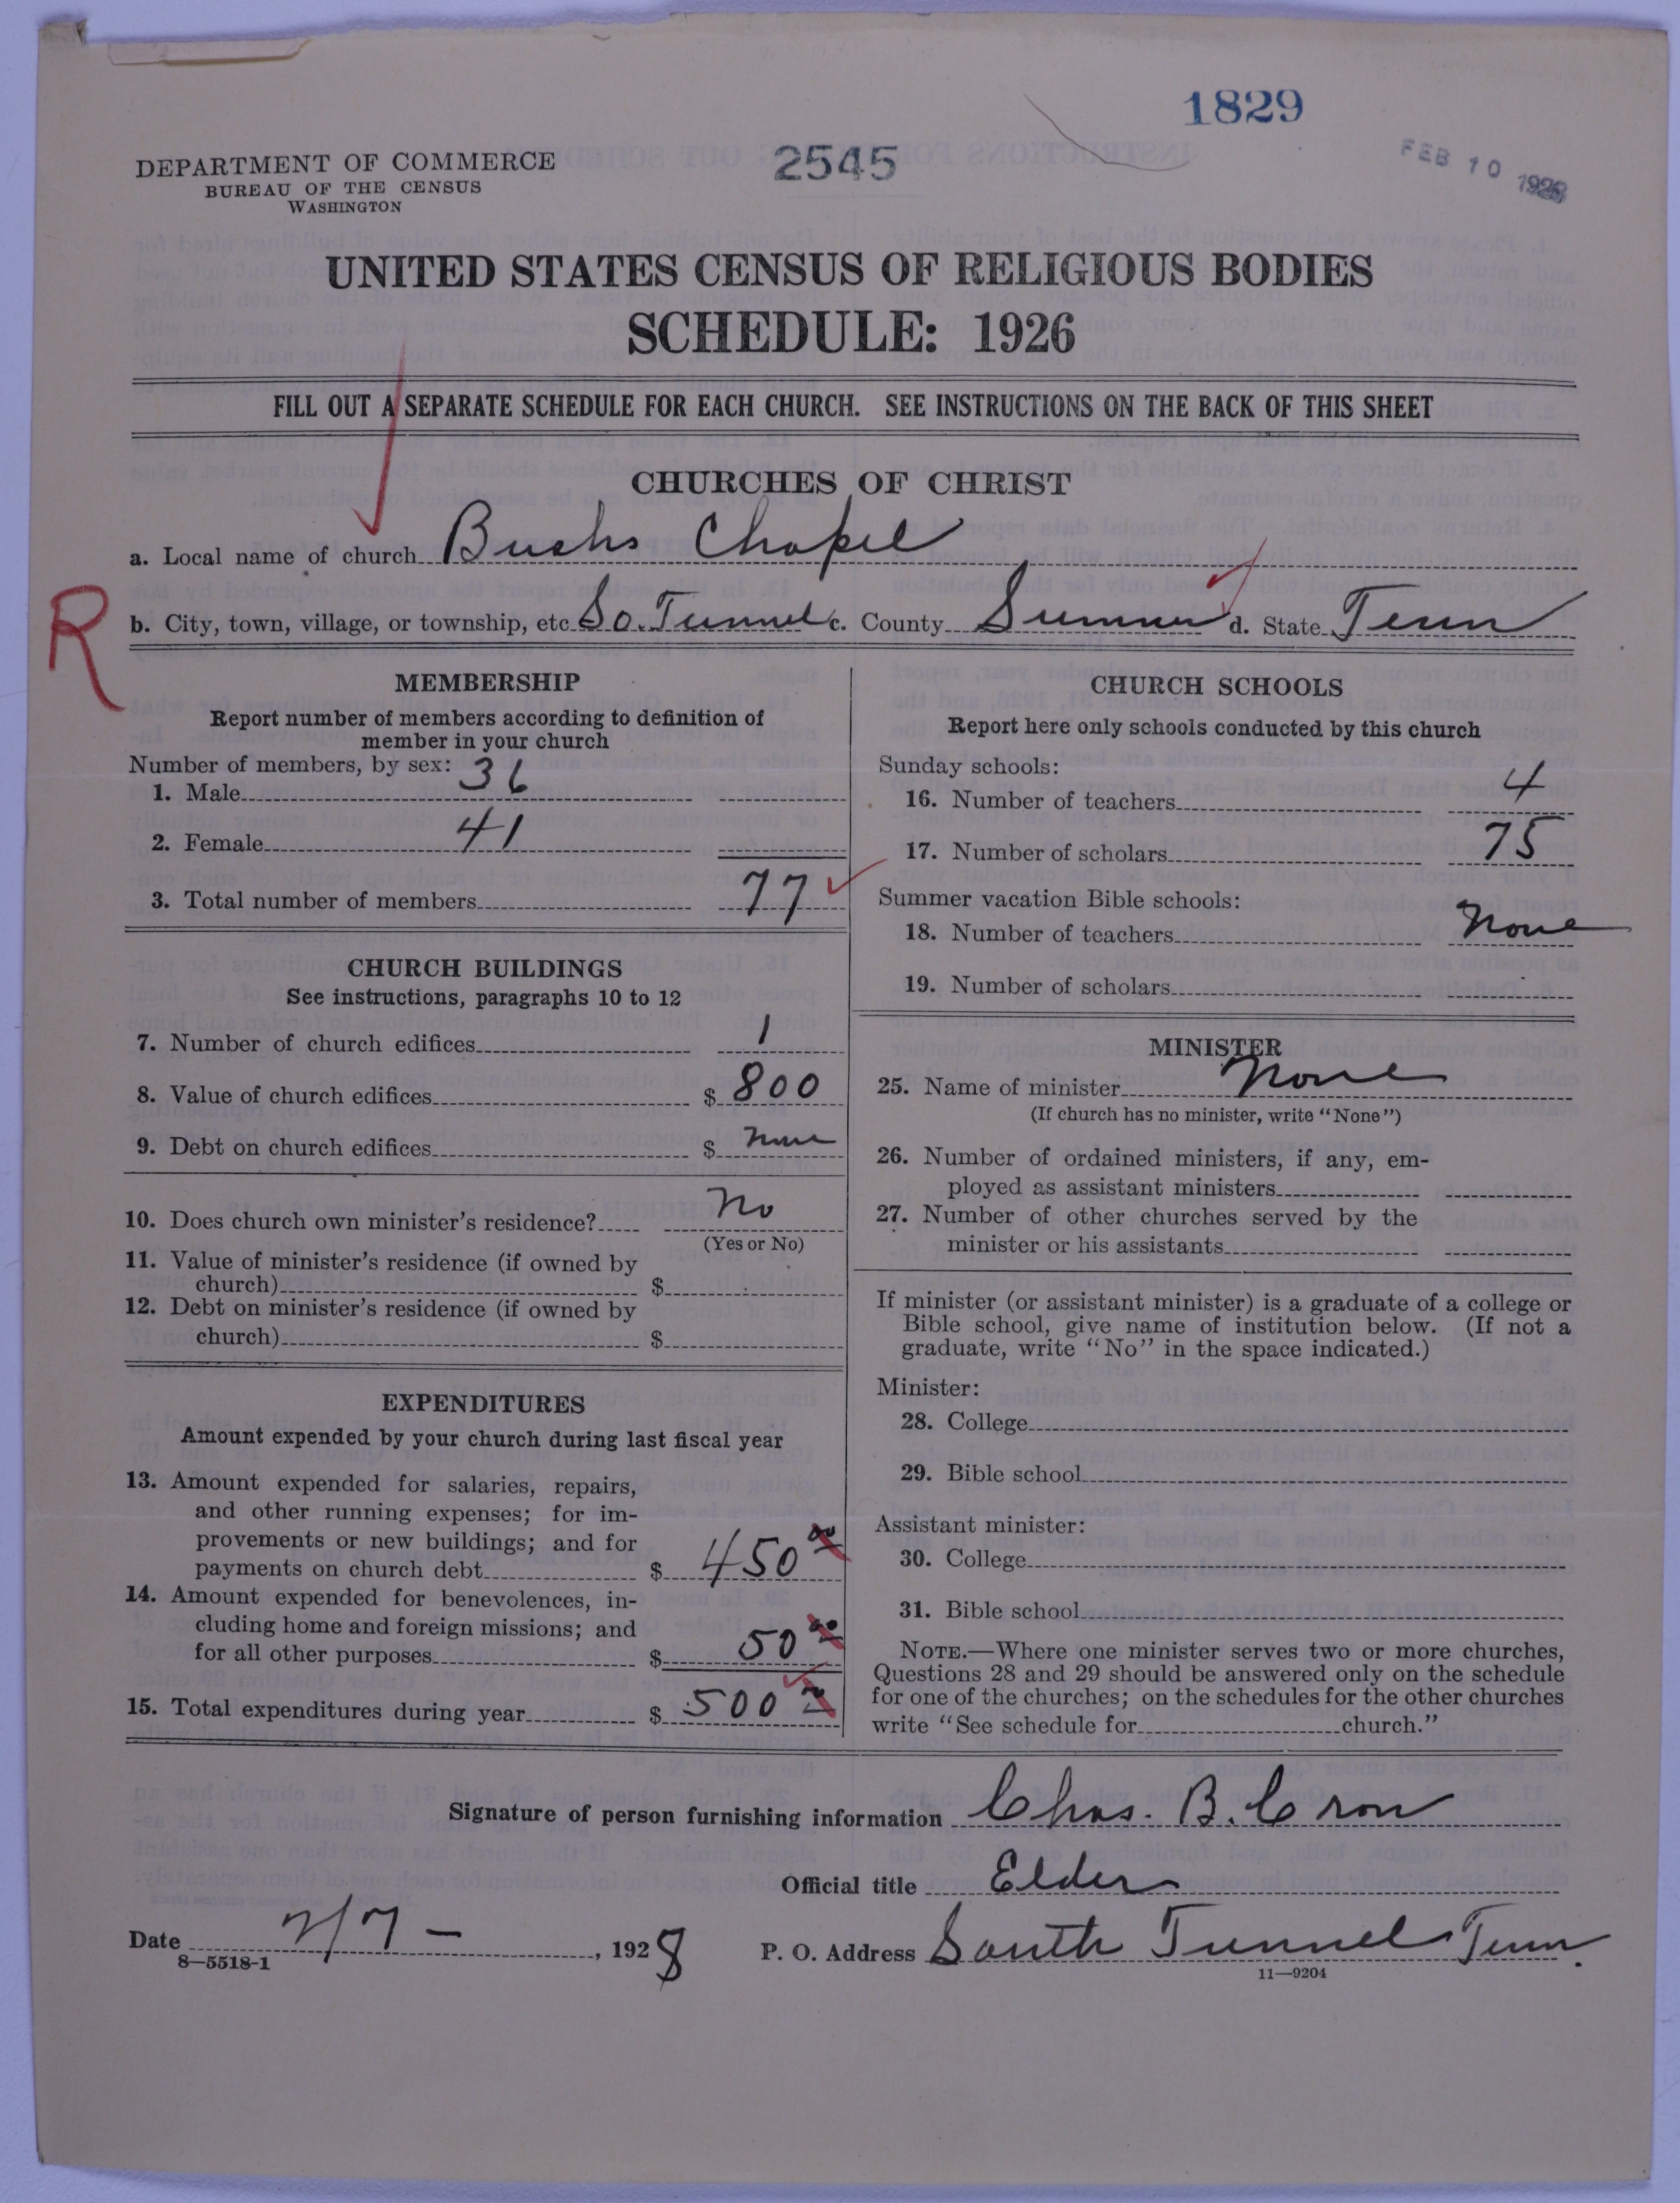 1829
2545
FEB 10 1928
DEPARTMENT OF COMMERCE
BUREAU OF THE CENSUS
WASHINGTON
UNITED STATES CENSUS OF RELIGIOUS BODIES
SCHEDULE: 1926
FILL OUT A SEPARATE SCHEDULE FOR EACH CHURCH. SEE INSTRUCTIONS ON THE BACK OF THIS SHEET
CHURCHES OF CHRIST
a. Local name of church Bushs Chapel
b. City, town, village, or township, etc. So. Tunnel c. County Sumner d. State Tenn
R
MEMBERSHIP
Report number of members according to definition of
member in your church
Number of members, by sex:
1. Male 36
2. Female 41
3. Total number of members 77
CHURCH BUILDINGS
See instructions, paragraphs 10 to 12
7. Number of church edifices 1
8. Value of church edifices $ 800
9. Debt on church edifices $ None
10. Does church own minister's residence? No
(Yes or No)
11. Value of minister's residence (if owned by
church) $
12. Debt on minister's residence (if owned by
church) $
EXPENDITURES
Amount expended by your church during last fiscal year
13. Amount expended for salaries, repairs,
and other running expenses; for im-
provements or new buildings; and for
payments on church debt $ 450 00
14. Amount expended for benevolences, in-
cluding home and foreign missions; and
for all other purposes $ 50 00
15. Total expenditures during year $ 500 00
CHURCH SCHOOLS
Report here only schools conducted by this church
Sunday schools:
16. Number of teachers 4
17. Number of scholars 75
Summer vacation Bible schools:
18. Number of teachers None
19. Number of scholars
MINISTER
25. Name of minister None
(If church has no minister, write "None")
26. Number of ordained ministers, if any, em-
ployed as assistant ministers
27. Number of other churches served by the
minister or his assistants
If minister (or assistant minister) is a graduate of a college or
Bible school, give name of institution below. (If not a
graduate, write "No" in the space indicated.)
Minister:
28. College
29. Bible school
Assistant minister:
30. College
31. Bible school
NOTE.—Where one minister serves two or more churches,
Questions 28 and 29 should be answered only on the schedule
for one of the churches; on the schedules for the other churches
write "See schedule for church."
Signature of person furnishing information Chas. B. Cron
Official title Elder
Date 2/7 - , 1928 P. O. Address South Tunnel Tenn.
8—5518-1
11—9204